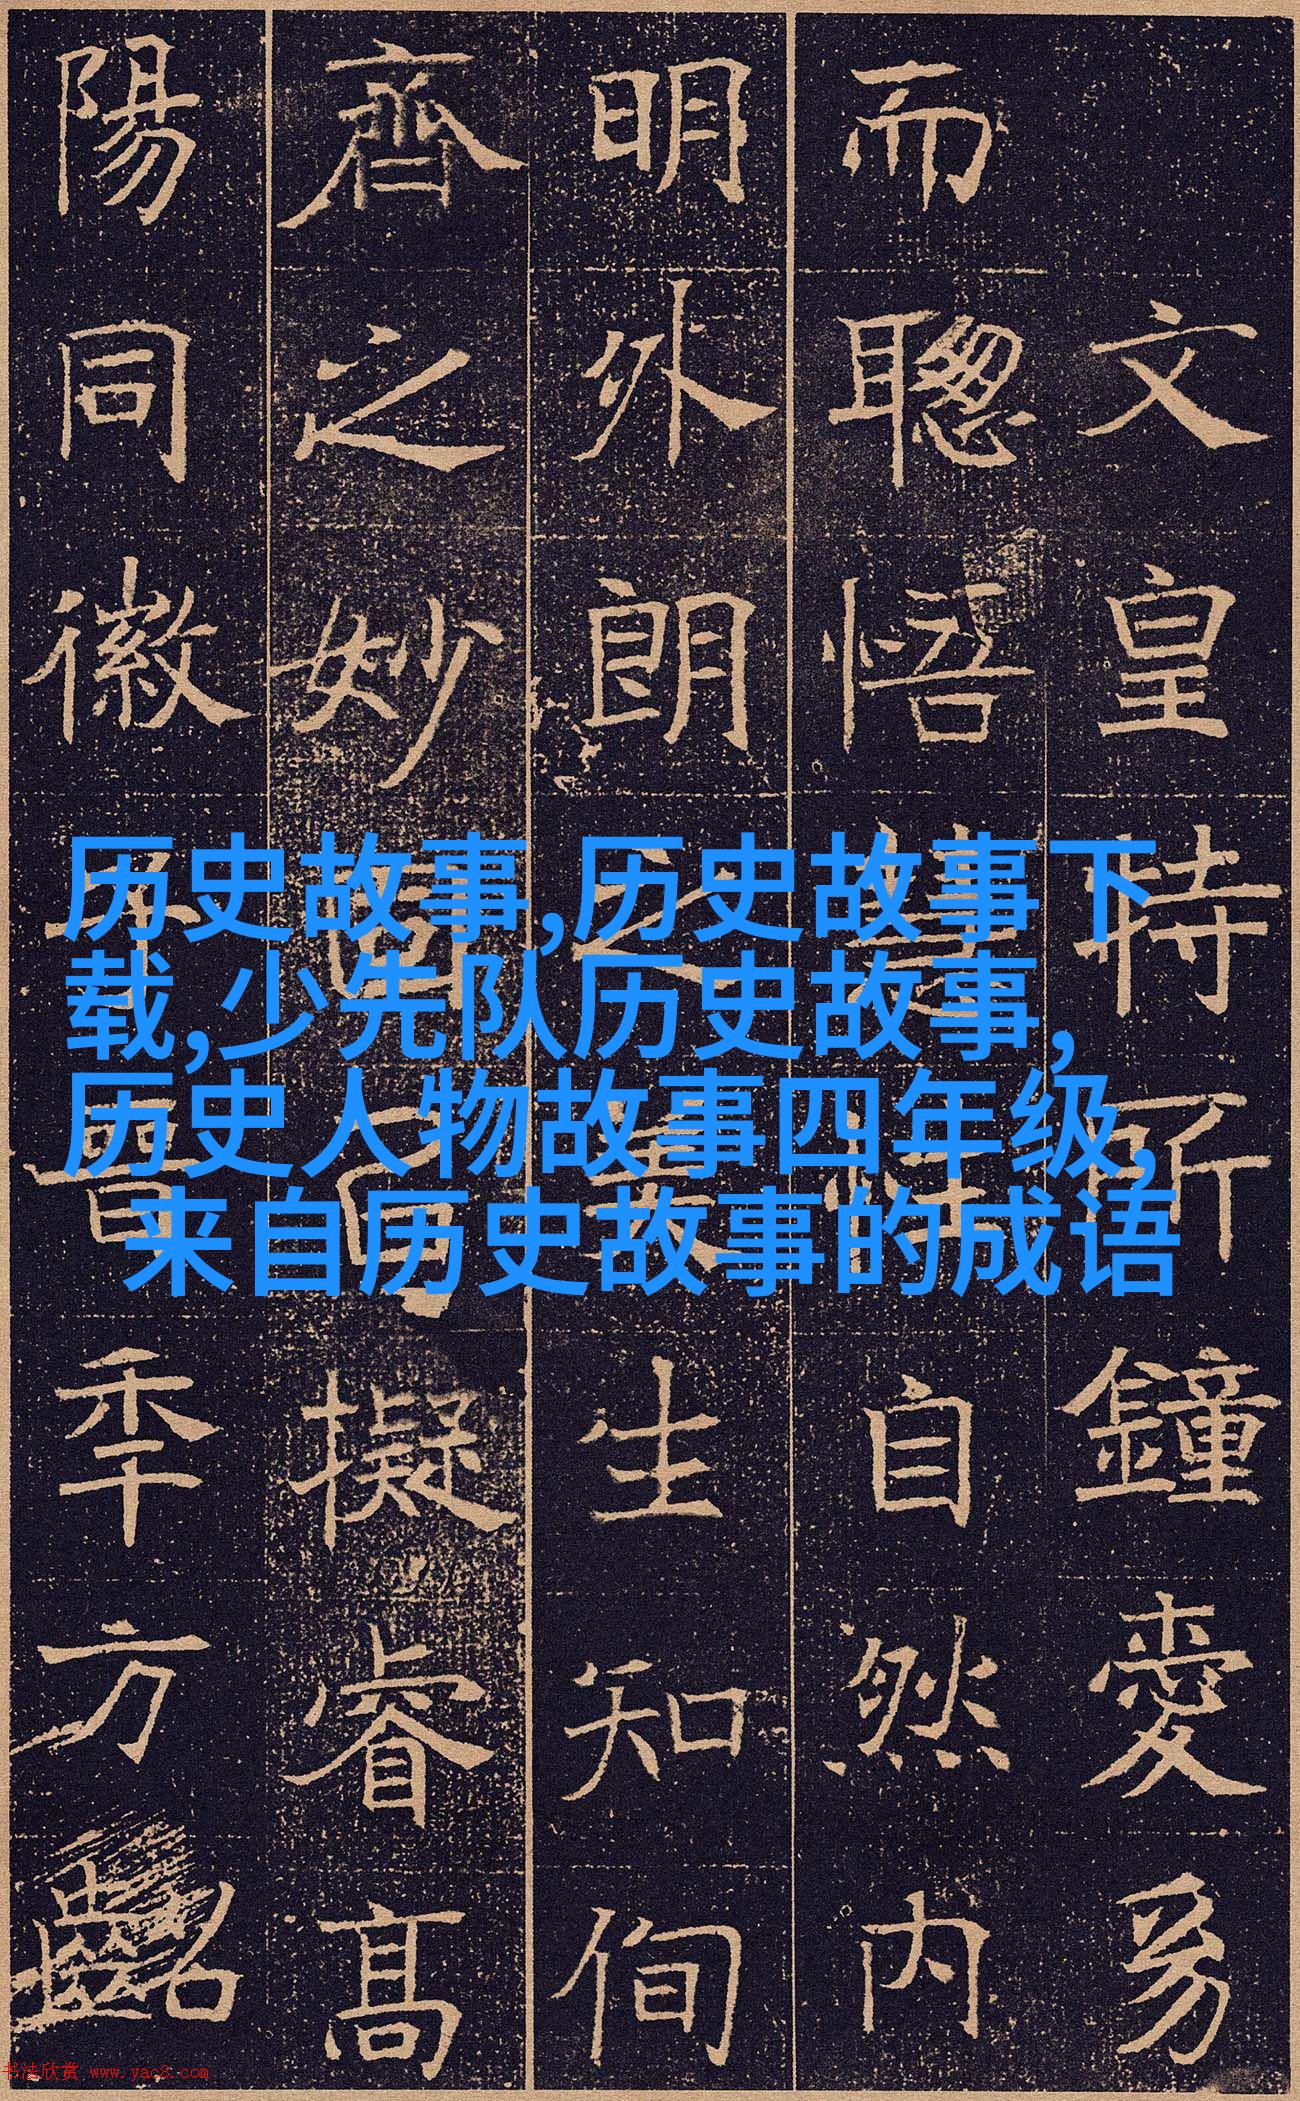 文皇特所鐘愛焉
而聰悟自然内
明外朗之生知徇
齊之妙擬睿高
陽同徽晉季方齠
历史故事,历史故事下
载,少先队历史故事,
历史人物故事四年级,
来自历史故事的成语
书法欣赏 www.yac8.com